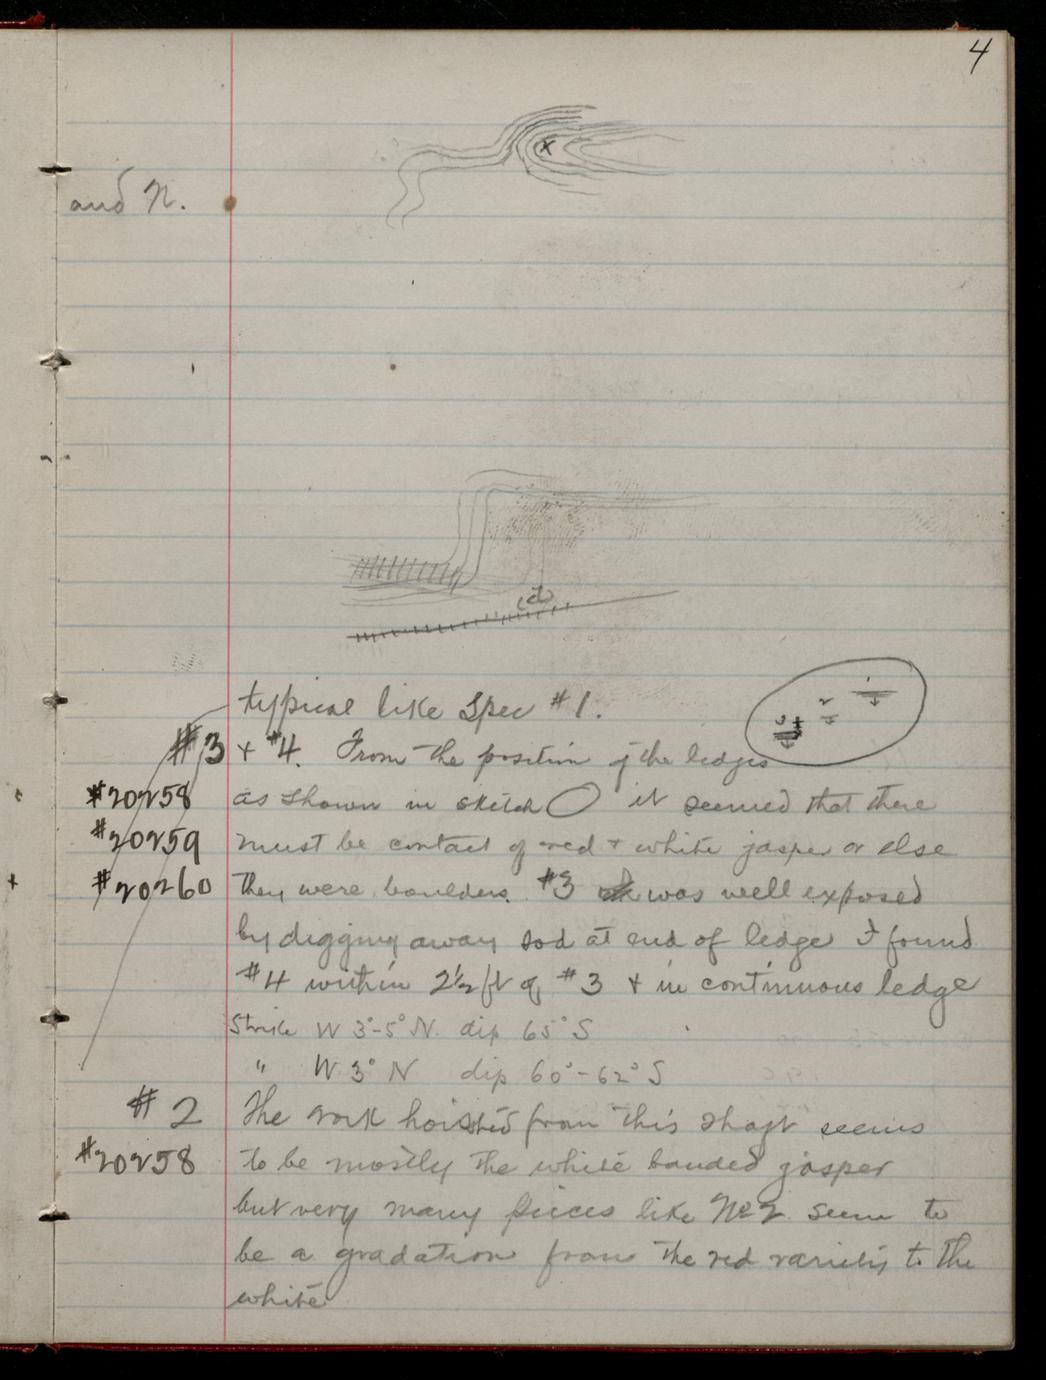 4
x
and N.
(d)
typical like Spec #1.
1
2
3 4
#3 + #4. From the position of the ledges
#20258 as shown in sketch it seemed that there
#20259 must be contact of red + white jasper or else
#20260 they were boulders. #3 was well exposed
by digging away sod at end of ledge I found
#4 within 2½ ft of #3 + in continuous ledge
Strike W 3°-5° N. dip 65° S
" W 3° N dip 60°-62° S
#2 The rock hoisted from this shaft seems
#20258 to be mostly the white banded jasper
but very many pieces like No 2 seem to
be a gradation from the red varieties to the
white